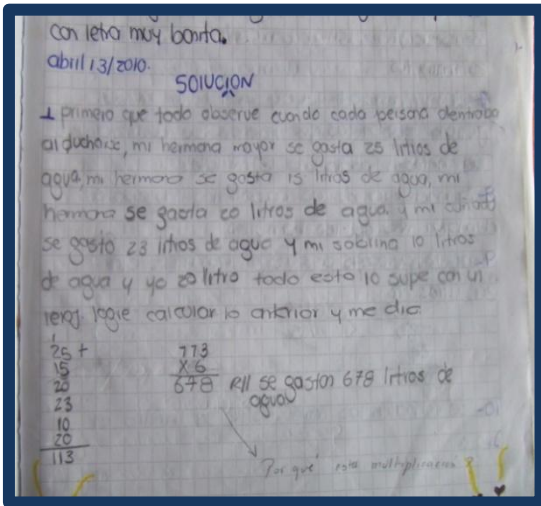 con letra muy bonita.
abril 13/2010.
SOIUCION
1 primero que todo observe cuando cada persona dentraba
al ducharse, mi hermana mayor se gasta 25 litros de
agua, mi hermano se gasta 15 litros de agua, mi
hermana se gasta 20 litros de agua y mi cuñado
se gasto 23 litros de agua y mi sobrina 10 litros
de agua y yo 20 litro todo esto lo supe con un
reloj logre calcular lo anterior y me dio
1
25 +
15
20
23
10
20
113
113
X 6
678 R// se gastan 678 litros de
agua
Por qué esta multiplicación?